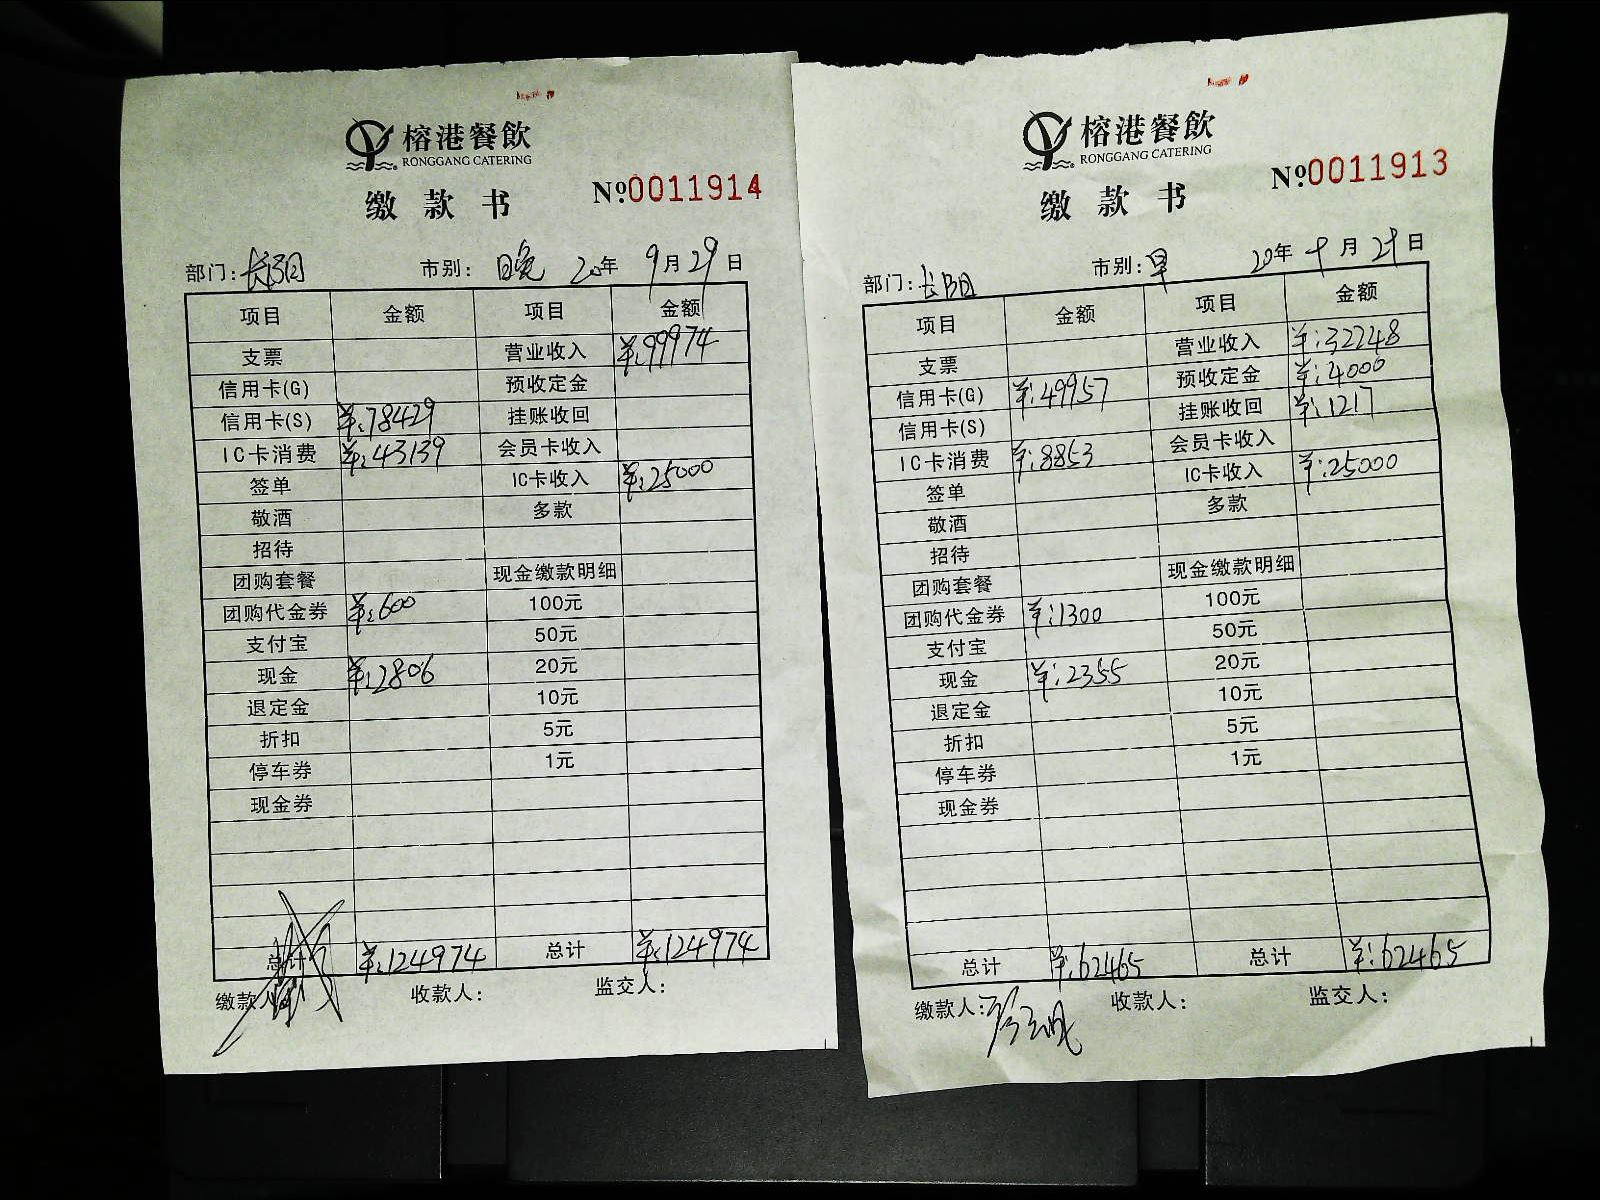 榕港餐飲
RONGGANG CATERING
缴款书
№0011914
部门:长阳 市别:晚 20年9月29日
项目 金额 项目 金额
支票 营业收入 ¥:99974
信用卡(G) 预收定金
信用卡(S) ¥:78429 挂账收回
IC卡消费 ¥:43139 会员卡收入
签单 IC卡收入 ¥:25000
敬酒 多款
招待
团购套餐 现金缴款明细
团购代金券 ¥:600 100元
支付宝 50元
现金 ¥:2806 20元
退定金 10元
折扣 5元
停车券 1元
现金券
总计 ¥:124974 总计 ¥:124974
缴款人 收款人: 监交人:
榕港餐飲
RONGGANG CATERING
缴款书
№0011913
部门:长阳 市别:早 20年9月29日
项目 金额 项目 金额
支票 营业收入 ¥:32248
信用卡(G) ¥:49957 预收定金 ¥:4000
信用卡(S) 挂账收回 ¥:1217
IC卡消费 ¥:8853 会员卡收入
签单 IC卡收入 ¥:25000
敬酒 多款
招待
团购套餐 现金缴款明细
团购代金券 ¥:1300 100元
支付宝 50元
现金 ¥:2355 20元
退定金 10元
折扣 5元
停车券 1元
现金券
总计 ¥:62465 总计 ¥:62465
缴款人: 收款人: 监交人: